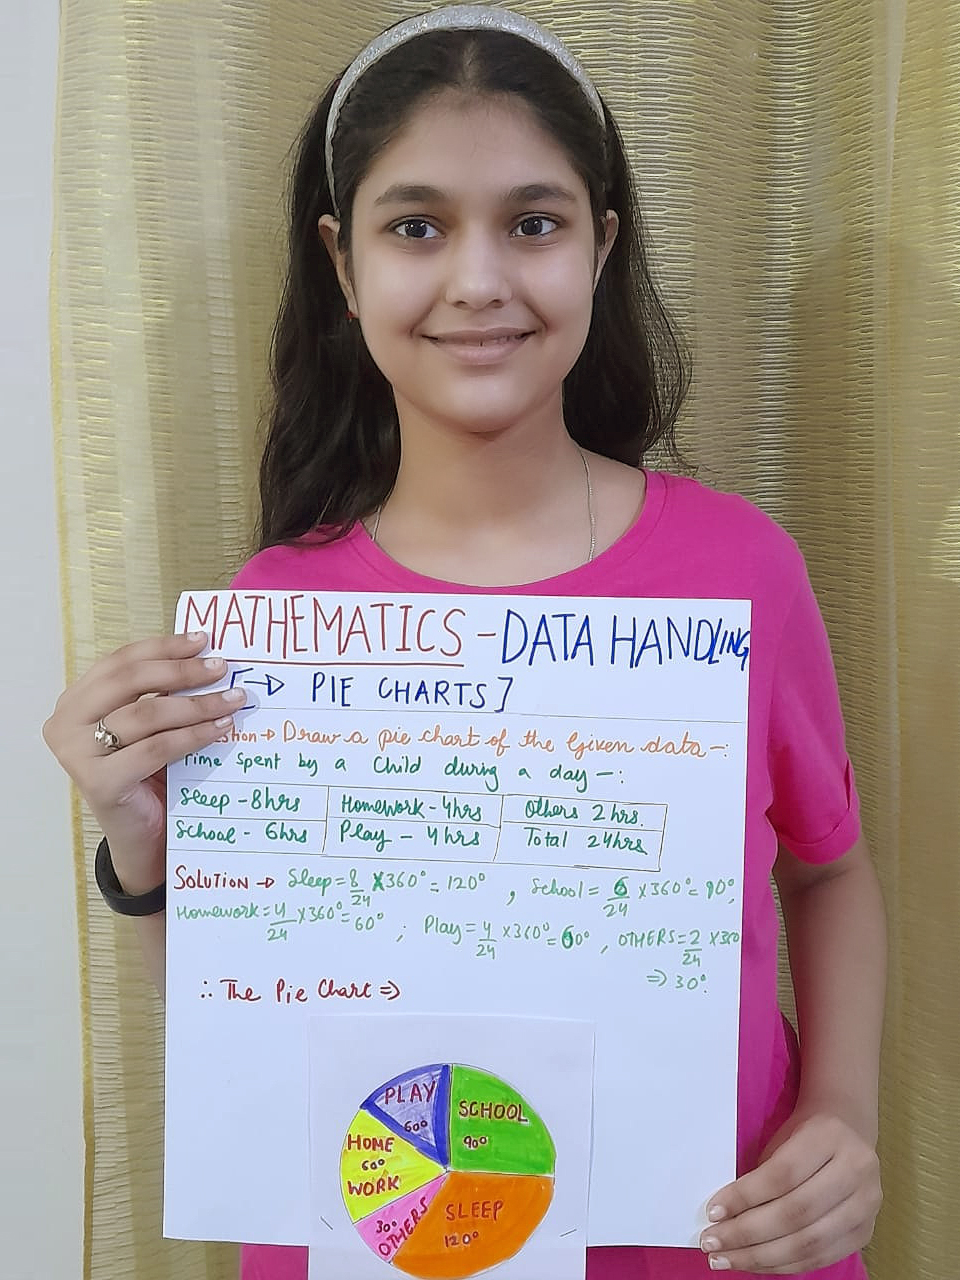 MATHEMATICS - DATA HANDLING
[→ PIE CHARTS]
stion → Draw a pie chart of the Given data -:
Time spent by a Child during a day -:
Sleep - 8hrs Homework - 4hrs Others 2 hrs.
School - 6hrs Play - 4hrs Total 24hrs
SOLUTION → Sleep = 8/24 X 360° = 120° , School = 6/24 × 360° = 90°,
Homework = 4/24 × 360° = 60° ; Play = 4/24 × 360° = 60° , OTHERS = 2/24 × 360
⇒ 30°.
∴ The Pie Chart ⇒
PLAY
60°
SCHOOL
90°
HOME
60°
WORK
30°
OTHERS
SLEEP
120°